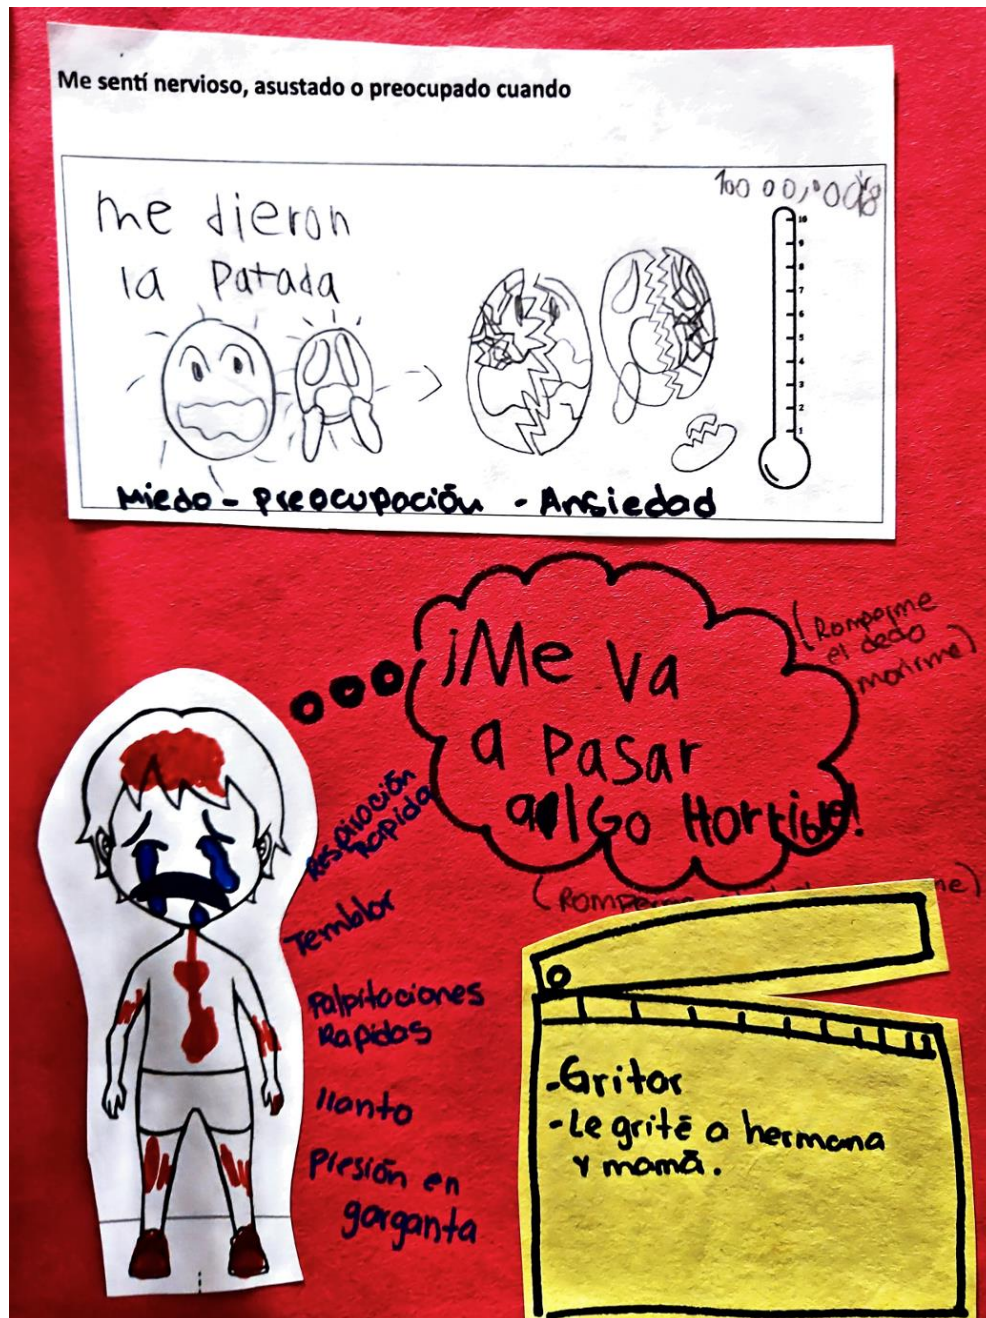 Me sentí nervioso, asustado o preocupado cuando
me dieron
la Patada
10
9
8
7
6
5
4
3
2
1
Miedo - Preocupación - Ansiedad
¡Me va
a Pasar
algo Horrible!
(Romperme
el dedo
morirme)
Respiración
rapida
Temblor
Palpitaciones
Rapidas
llanto
Presión en
garganta
(Romperme
me)
-Gritar
-Le grité a hermana
y mamá.